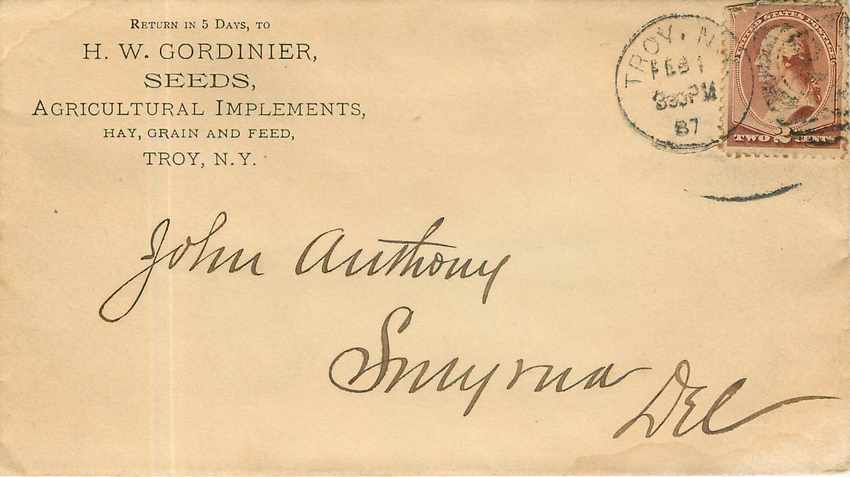 Return in 5 Days, to
H. W. GORDINIER,
SEEDS,
Agricultural Implements,
HAY, GRAIN AND FEED,
TROY, N.Y.
TROY, N.
FEB 1
330PM
87
UNITED STATES POSTAGE
TWO 2 CENTS
John Anthony
Smyrna
Del